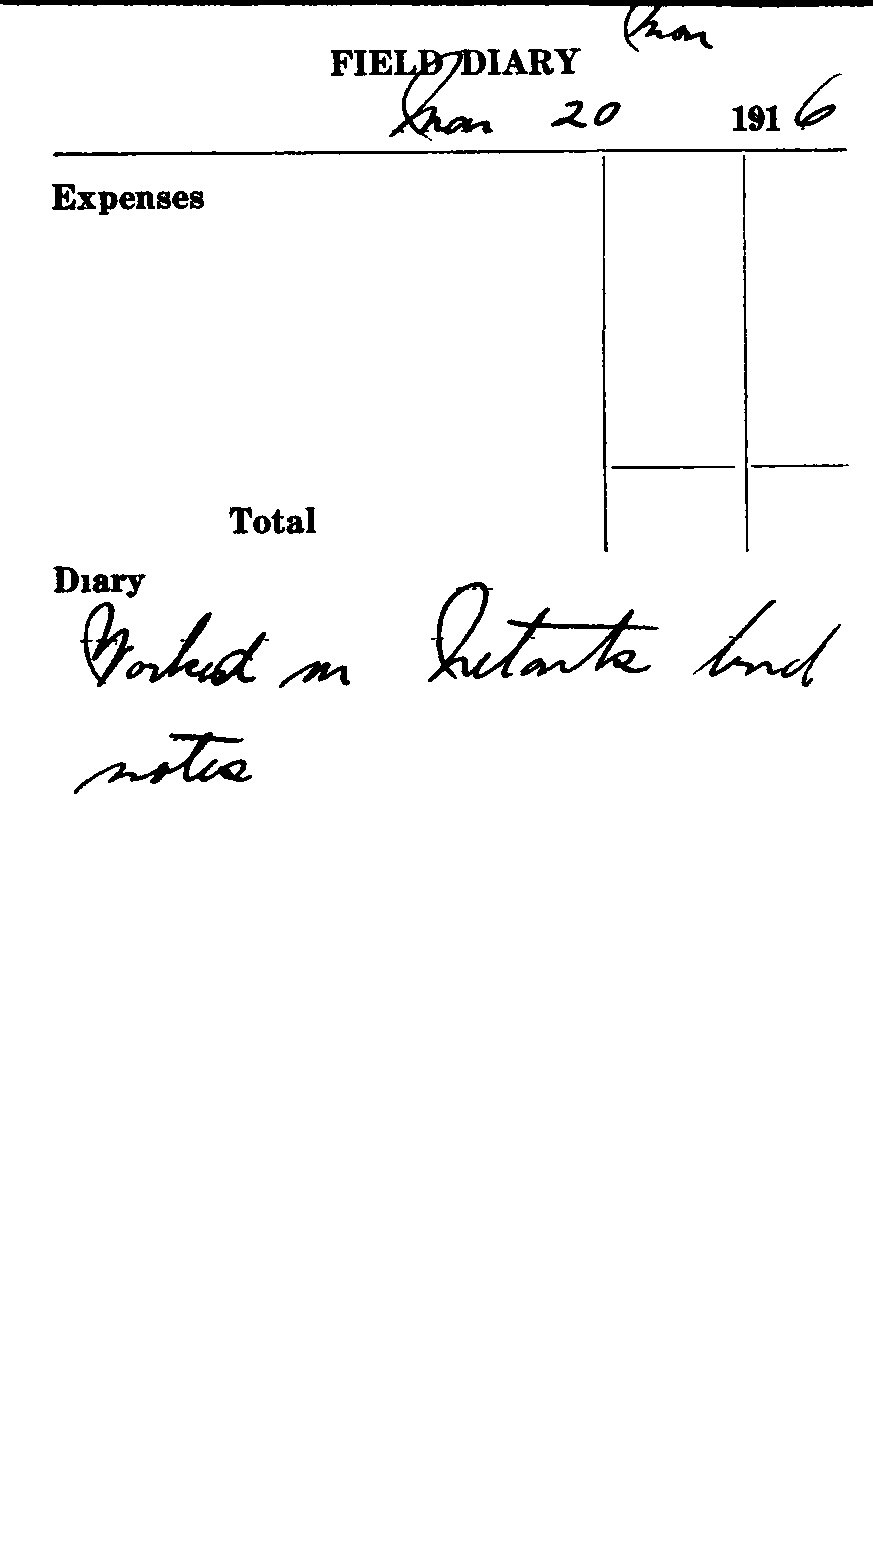 Mon
FIELD DIARY
Mar 20 1916
Expenses
Total
Diary
Worked on Netarts bird
notes